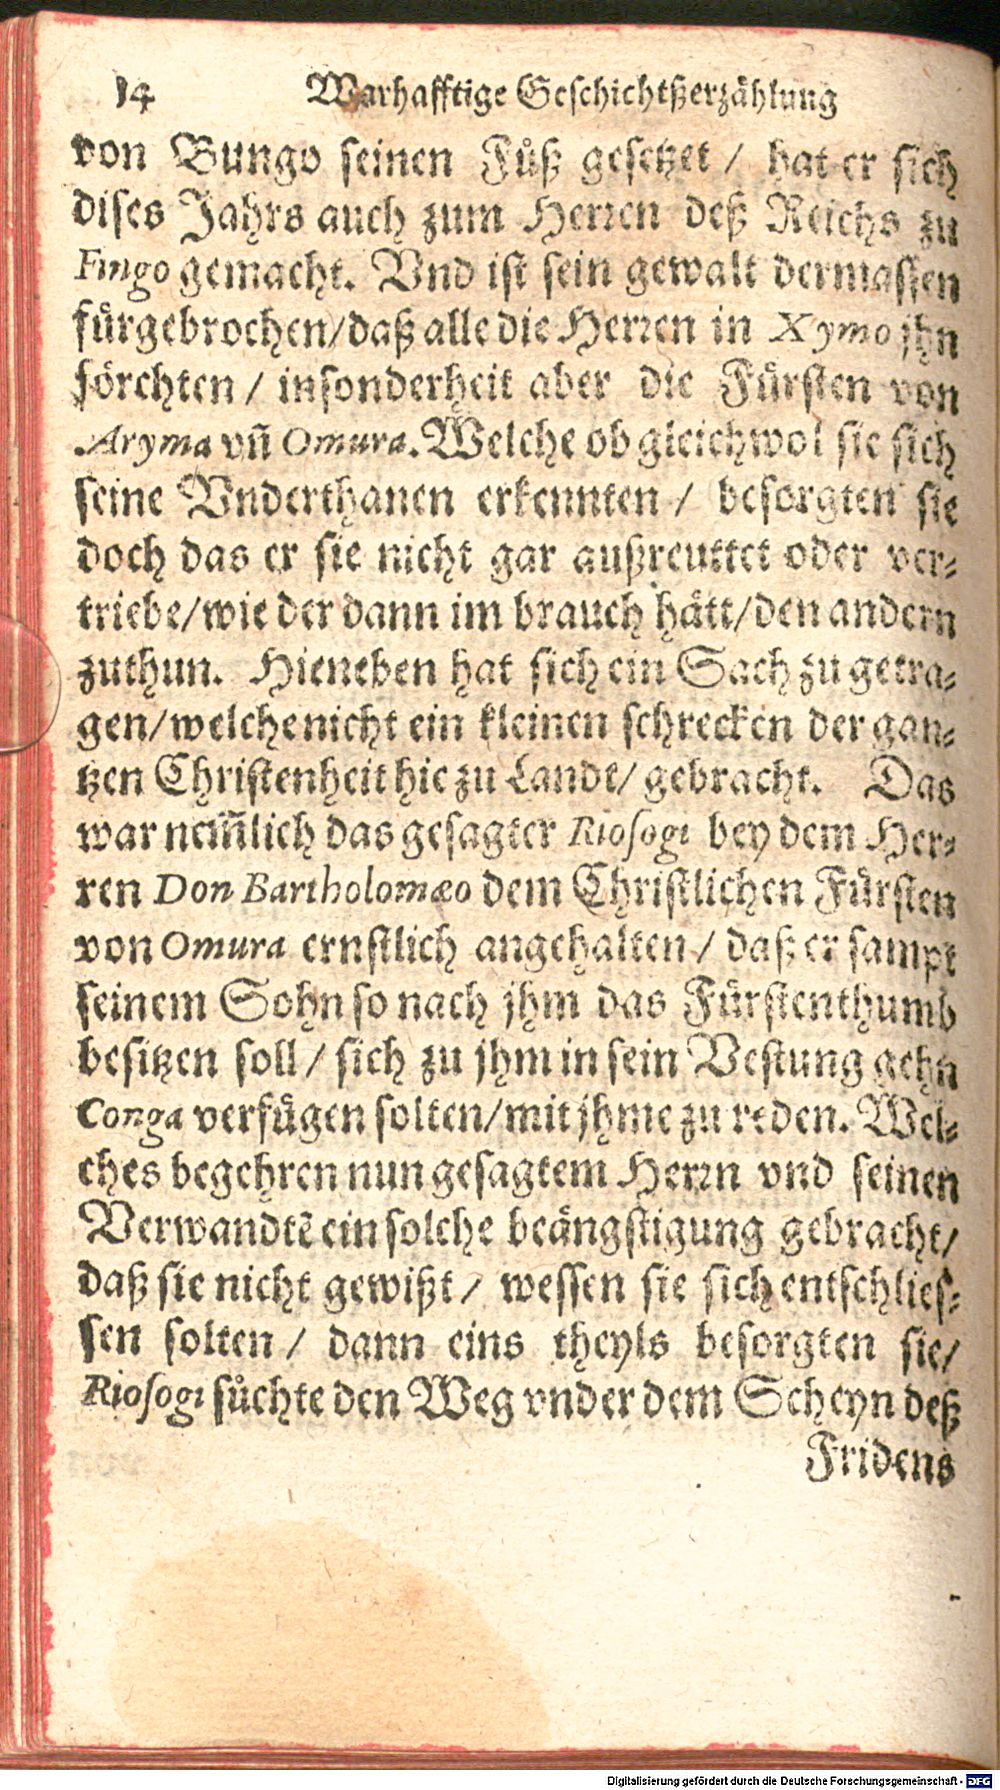 14 Warhafftige Geschichtßerzählung
von Bungo seinen Fůß gesetzet / hat er sich
dises Jahrs auch zum Herren deß Reichs zu
Fingo gemacht. Vnd ist sein gewalt dermassen
fürgebrochen/daß alle die Herren in Xymo jhn
förchten / insonderheit aber die Fürsten von
Aryma vñ Omura. Welche ob gleichwol sie sich
seine Vnderthanen erkennten / besorgten sie
doch das er sie nicht gar außreuttet oder ver-
triebe/wie der dann im brauch hätt/den andern
zuthun. Hieneben hat sich ein Sach zu getra-
gen/welche nicht ein kleinen schrecken der gan-
tzen Christenheit hie zu Lande/ gebracht. Das
war nem̃lich das gesagter Riosogi bey dem Her-
ren Don Bartholomæo dem Christlichen Fürsten
von Omura ernstlich angehalten / daß er sampt
seinem Sohn so nach jhm das Fürstenthumb
besitzen soll / sich zu jhm in sein Vestung gehn
Conga verfügen solten/mit jhme zu reden. Wel-
ches begehren nun gesagtem Herrn vnd seinen
Verwandtẽ ein solche beängstigung gebracht/
daß sie nicht gewißt / wessen sie sich entschlies-
sen solten / dann eins theyls besorgten sie/
Riosogi sůchte den Weg vnder dem Scheyn deß
Fridens
Digitalisierung gefördert durch die Deutsche Forschungsgemeinschaft - DFG